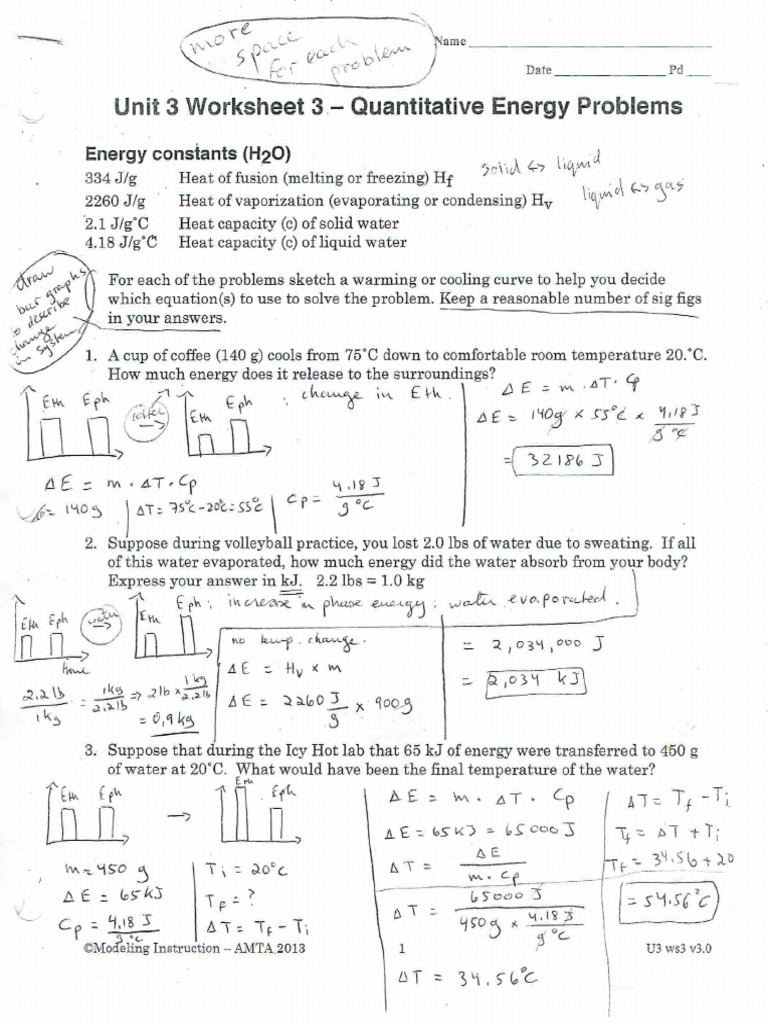 more
space
for each
problem
Name
Date Pd
Unit 3 Worksheet 3 – Quantitative Energy Problems
Energy constants (H2O)
334 J/g Heat of fusion (melting or freezing) Hf
solid ↔ liquid
2260 J/g Heat of vaporization (evaporating or condensing) Hv
liquid ↔ gas
2.1 J/g°C Heat capacity (c) of solid water
4.18 J/g°C Heat capacity (c) of liquid water
draw
bar graphs
to describe
change
in system
For each of the problems sketch a warming or cooling curve to help you decide
which equation(s) to use to solve the problem. Keep a reasonable number of sig figs
in your answers.
1. A cup of coffee (140 g) cools from 75°C down to comfortable room temperature 20.°C.
How much energy does it release to the surroundings?
Eth Eph
Eth Eph
: change in Eth.
ΔE = m · ΔT · Cp
= 140g
ΔT = 75°C - 20°C = 55°C
Cp = 4.18 J / g °C
ΔE = m · ΔT · Cp
ΔE = 140g × 55°C × 4.18 J / g °C
= 32186 J
2. Suppose during volleyball practice, you lost 2.0 lbs of water due to sweating. If all
of this water evaporated, how much energy did the water absorb from your body?
Express your answer in kJ. 2.2 lbs = 1.0 kg
Eth Eph
water
Eth Eph
: increase in phase energy: water evaporated.
time
2.2 lb / 1 kg = 1kg / 2.2 lb ⇒ 2lb × 1 kg / 2.2 lb
= 0,9 kg
no temp. change.
ΔE = Hv × m
ΔE = 2260 J / g × 900g
= 2,034,000 J
= 2,034 kJ
3. Suppose that during the Icy Hot lab that 65 kJ of energy were transferred to 450 g
of water at 20°C. What would have been the final temperature of the water?
Eth Eph
Eth Eph
m = 450 g
ΔE = 65 kJ
Cp = 4.18 J / g °C
Ti = 20°C
Tf = ?
ΔT = Tf - Ti
ΔE = m · ΔT · Cp
ΔE = 65 kJ = 65000 J
ΔT = ΔE / m · Cp
ΔT = 65000 J / 450g × 4.18 J / g °C
ΔT = 34.56°C
ΔT = Tf - Ti
Tf = ΔT + Ti
Tf = 34.56 + 20
= 54.56°C
©Modeling Instruction – AMTA 2013 1 U3 ws3 v3.0